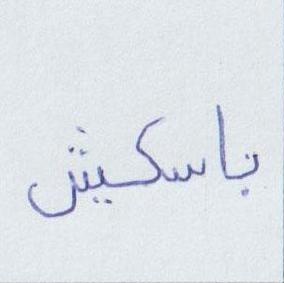 باسكيش